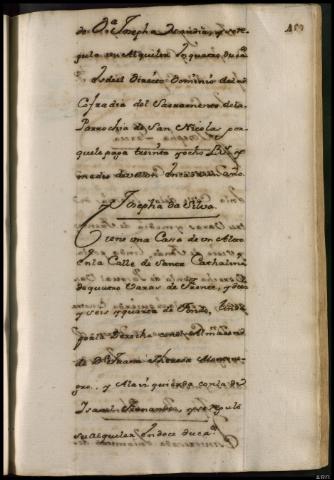 de Dª Josepha
gula su Alquiler en quatro ducaˢ
y es del Directo Dominio de la
Cofradia del Sacramento de la
Parrochia de San Nicolas por
que le paga treinta y ocho Libˢ y
medio de vellon en cada un Año.
Josepha da Silva.
Tiene una Casa de un Alto
en la Calle de Santa Cathalina
de quatro Varas de Frente, y
y seis y quarta de Fondo, linda
por la Derecha con el Almazen
de Dª Juana Theresa
y a la Yzquierda con la de
Isavel Fernandez, y se reguló
su alquiler en doce ducaˢ.
ARG